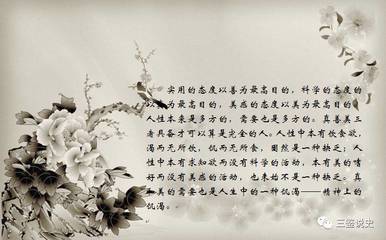 实用的态度以善为最高目的，科学的态度的
以真为最高目的，美感的态度以美为最高目的，
人性本来是多方的，需要也是多方的。真善美三
者具备才可以算是完全的人。人性中本有饮食欲，
渴而无所饮，饥而无所食，固然是一种缺乏；人
性中本有求知欲而没有科学的活动，本有美的嗜
好而没有美感的活动，也未始不是一种缺乏。真
和美的需要也是人生中的一种饥渴——精神上的
饥渴。
三鉴说史